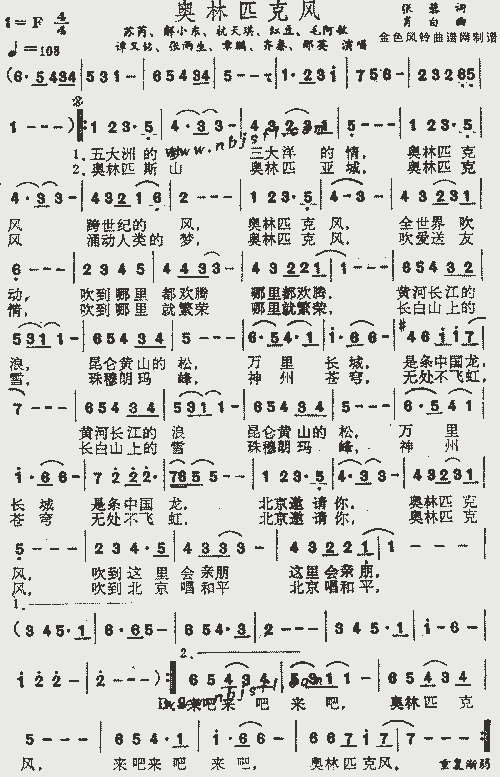 奥林匹克风
1=F 4/4
♩=108
词
肖白 曲
金色风铃曲谱网制谱
苏芮、解小东、杭天琪、红豆、毛阿敏
谭又铭、张雨生、章鹏、齐秦、那英 演唱
(6·5 4534 | 5 3 1 - | 6·5 4 5 3 | 5 - - - | 1·2 3 1 | 7 5 6 - | 2 3 2 6 5
1 - - - ) ‖: 1 2 3·5 | 4·3 3 - | 4 3 2 3 1 | 5 - - - | 1 2 3·5
1、五大洲的梦 三大洋 的情， 奥林匹克
2、奥林匹斯山 奥林匹 亚城， 奥林匹克
www.nbjsfl.com
4·3 3 - | 4 3 2 1 6 | 2 - - - | 1 2 3·5 | 4·3 - | 4 3 2 3 1
风 跨世纪的 风， 奥林匹克 风， 全世界 吹
风 涌动人类的 梦， 奥林匹克 风， 吹爱送 友
6 - - - | 2 3 4 5 | 4 4 3 3 - | 4 3 2 2 1 | 1 - - - | 6 5 4 3 2
动， 吹到哪里 都欢腾 哪里都欢腾， 黄河长江的
情， 吹到哪里 就繁荣 哪里就繁荣， 长白山上的
5 3 1 1 - | 6 5 4 3 4 | 5 - - - | 6·5 4·1 | 1·6 6 - | #4 6 i i 7
浪， 昆仑黄山的 松， 万里 长城， 是条中国龙，
雪， 珠穆朗玛 峰， 神州 苍穹， 无处不飞虹，
7 - - - | 6 5 4 3 4 | 5 3 1 1 - | 6 5 4 3 4 | 5 - - - | 6·5 4 1
黄河长江的 浪 昆仑黄山的 松， 万里
长白山上的 雪 珠穆朗玛 峰， 神州
i·6 6 - | 7 2 2 2· | 7 6 5 5 - | 1 2 3·5 | 4·3 3 - | 4 3 2 3 1
长城 是条中国 龙， 北京邀 请你， 奥林匹克
苍穹 无处不飞 虹， 北京邀 请你， 奥林匹克
5 - - - | 2 3 4·5 | 4 3 3 3 - | 4 3 2 2 1 | 1 - - -
风， 吹到这里 会亲朋 这里会亲朋，
风， 吹到北京 唱和平 北京唱和平，
1.
(3 4 5·1 | 6·6 5·1 | 6 5 4·3 | 2 - - - | 3 4 5·1 | i·6 -
2.
i 2 2 - | 2 - - - ) :‖ 6 5 4 3 4 | 5 3 1 1 - | 6 5 4 3 4
来吧来 吧 来吧， 奥林匹克
www.nbjsfl.com
5 - - - | 6 6 5 4·1 | i·6 6 - | 6 6 7 i 7 | i - - - :‖
风， 来吧来吧 来吧， 奥林匹克风， 重复渐弱